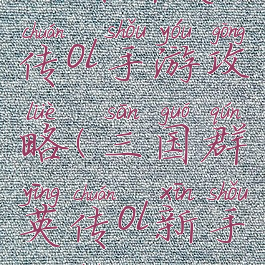 chuán shǒu yóu gōng
传OL手游攻
lüè sān guó qún
略(三国群
yīng chuán xīn shǒu
英传OL新手